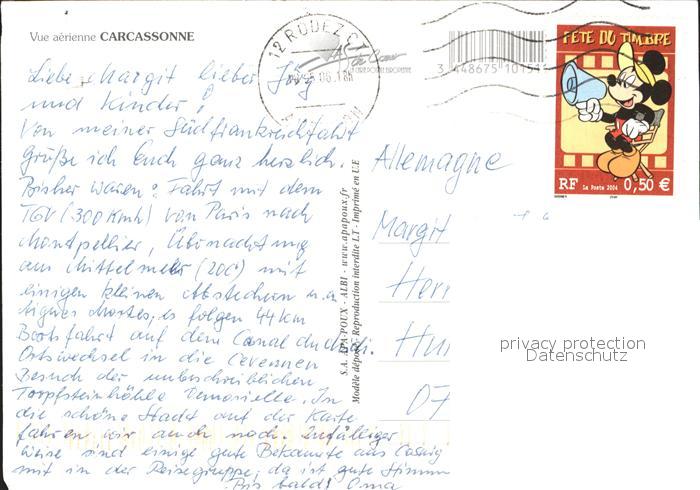 Vue aérienne CARCASSONNE
Liebe Margit lieber Jörg
und Kinder!
Von meiner Südfrankreichfahrt
grüße ich Euch ganz herzlich.
Bisher waren: Fahrt mit dem
TGV (300 Kmh) von Paris nach
Montpellier, Übernachtung
am Mittelmeer (20C) mit
einigen kleinen Abstechern u.a.
Aigues Mortes; es folgen 44 km
Bootsfahrt auf dem Canal du Midi.
Ortswechsel in die Cevennen
Besuch der unbeschreiblichen
Tropfsteinhöhle Demoiselle. In
die schöne Stadt auf der Karte
fahren wir auch noch. Zufälliger
Weise sind einige gute Bekannte aus Coswig
mit in der Reisegruppe; da ist gute Stimm
Bis bald! Oma
12 RODEZ CT
LA CARTE POSTALE EUROPEENNE
3 448675 10151
FÊTE DU TIMBRE
RF La Poste 2004 0,50 €
DISNEY
S.A. APA-POUX - ALBI - www.apapoux.fr
Modèle déposé - Reproduction interdite LT - Imprimé en U.E
Allemagne
Margit
Herr
07
privacy protection
Datenschutz